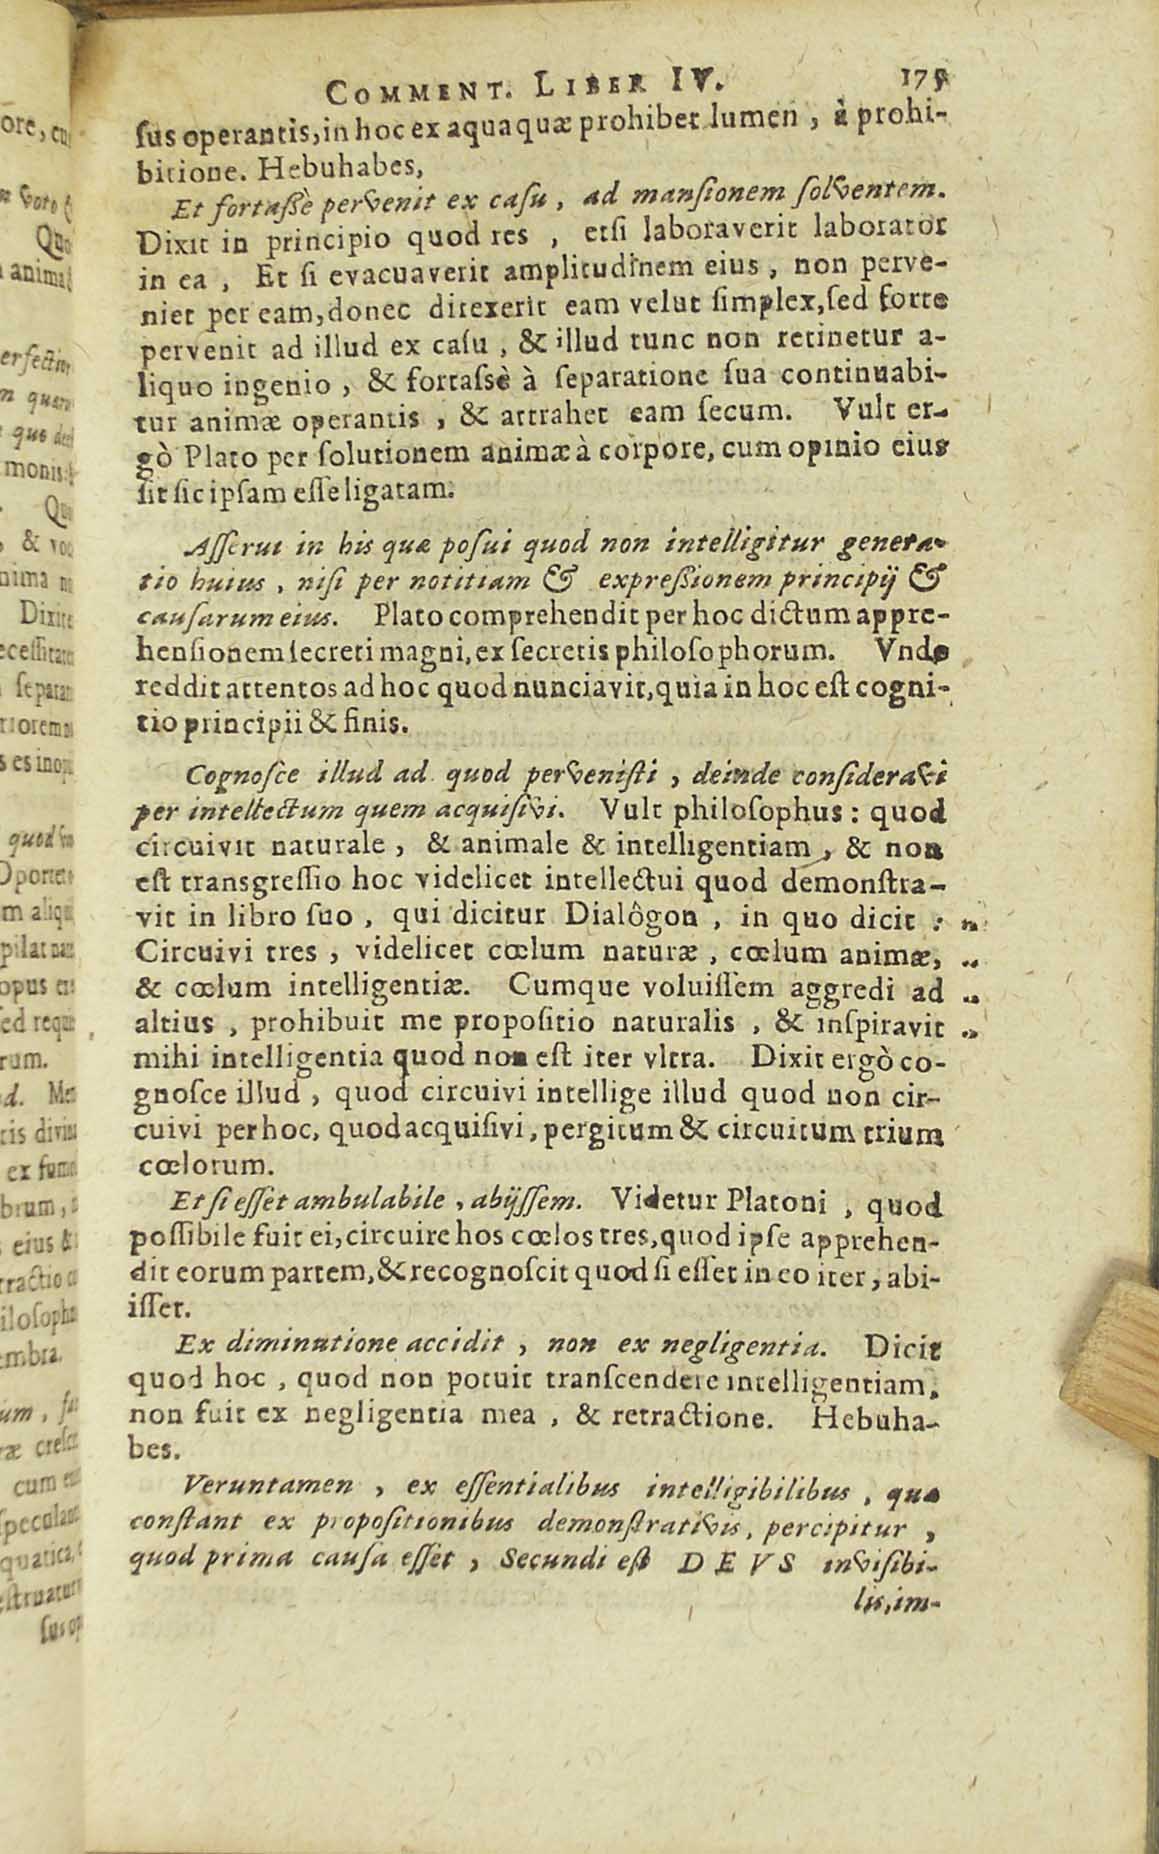 COMMENT. LIBER IV. 175
sus operantis, in hoc ex aqua quæ prohibet lumen, à prohi-
bitione. Hebuhabes,
Et fortassè pervenit ex casu, ad mansionem solventem.
Dixit in principio quod res, etsi laboraverit laborator
in ea, Et si evacuaverit amplitudinem eius, non perve-
niet per eam, donec direxerit eam velut simplex, sed forte
pervenit ad illud ex casu, & illud tunc non retinetur a-
liquo ingenio, & fortassè à separatione sua continuabi-
tur animæ operantis, & attrahet eam secum. Vult er-
gò Plato per solutionem animæ à corpore, cum opinio eius
sit sic ipsam esse ligatam.
Asserui in his quæ posui quod non intelligitur genera-
tio huius, nisi per notitiam & expressionem principij &
causarum eius. Plato comprehendit per hoc dictum appre-
hensionem secreti magni, ex secretis philosophorum. Vnde
reddit attentos ad hoc quod nunciavit, quia in hoc est cogni-
tio principii & finis.
Cognosce illud ad quod pervenisti, deinde consideravi
per intellectum quem acquisivi. Vult philosophus: quod
circuivit naturale, & animale & intelligentiam, & non
est transgressio hoc videlicet intellectui quod demonstra-
vit in libro suo, qui dicitur Dialôgon, in quo dicit: „
Circuivi tres, videlicet cœlum naturæ, cœlum animæ, „
& cœlum intelligentiæ. Cumque voluissem aggredi ad „
altius, prohibuit me propositio naturalis, & inspiravit „
mihi intelligentia quod non est iter vltra. Dixit ergò co-
gnosce illud, quod circuivi intellige illud quod non cir-
cuivi per hoc, quod acquisivi, pergitum & circuitum trium
cœlorum.
Et si esset ambulabile, abijssem. Videtur Platoni, quod
possibile fuit ei, circuire hos cœlos tres, quod ipse apprehen-
dit eorum partem, & recognoscit quod si esset in eo iter, abi-
isset.
Ex diminutione accidit, non ex negligentia. Dicit
quod hoc, quod non potuit transcendere intelligentiam,
non fuit ex negligentia mea, & retractione. Hebuha-
bes.
Veruntamen, ex essentialibus intelligibilibus, quæ
constant ex propositionibus demonstrativis, percipitur,
quod prima causa esset, Secundi est DEVS invisibi-
lis, im-